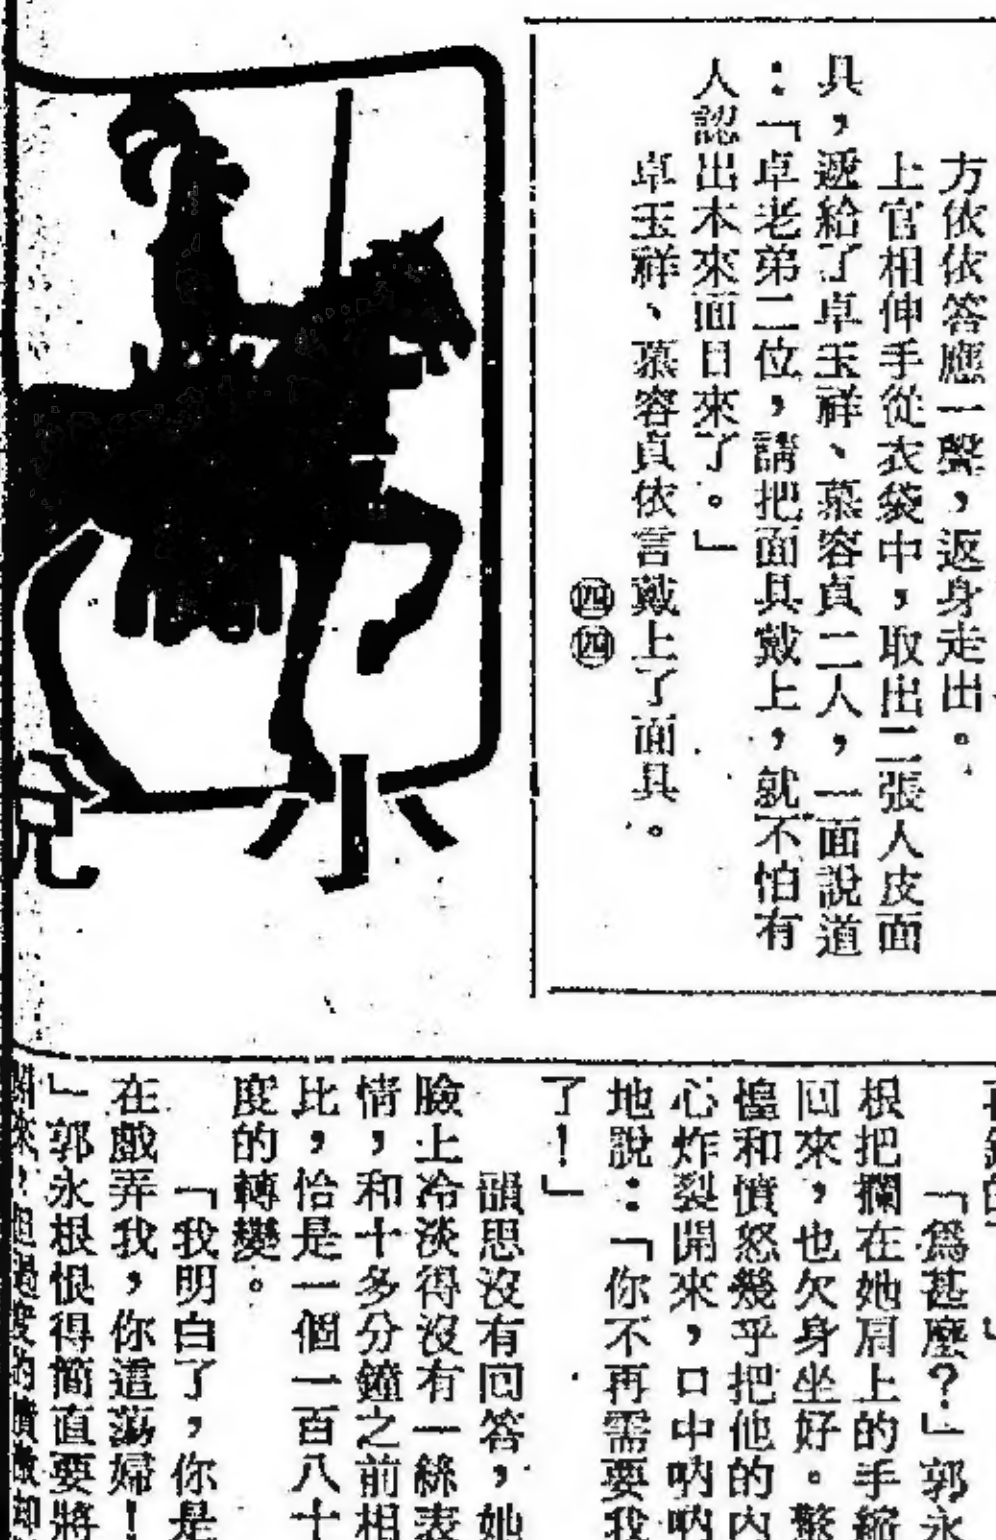 方依依答應一聲，返身走出。
上官相伸手從衣袋中，取出二張人皮面
具，遞給了卓玉祥、慕容貞二人，一面說道
：「卓老弟二位，請把面具戴上，就不怕有
人認出本來面目來了。」
卓玉祥、慕容貞依言戴上了面具。
㊃㊃
小
「為甚麼？」郭永
根把攔在她肩上的手縮
回來，也欠身坐好。驚
惶和憤怒幾乎把他的內
心炸裂開來，口中吶吶
地說：「你不再需要我
了！」
韻思沒有回答，她
臉上冷淡得沒有一絲表
情，和十多分鐘之前相
比，恰是一個一百八十
度的轉變。
「我明白了，你是
在戲弄我，你這蕩婦！
」郭永根恨得簡直要將